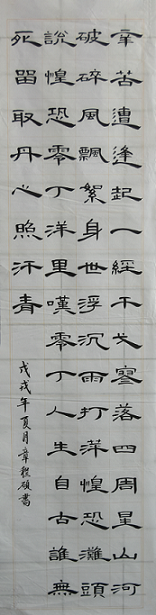 辛苦遭逢起一經干戈寥落四周星山河
破碎風飄絮身世浮沉雨打萍惶恐灘頭
說惶恐零丁洋里嘆零丁人生自古誰無
死留取丹心照汗青
戊戌年夏月章程碩書